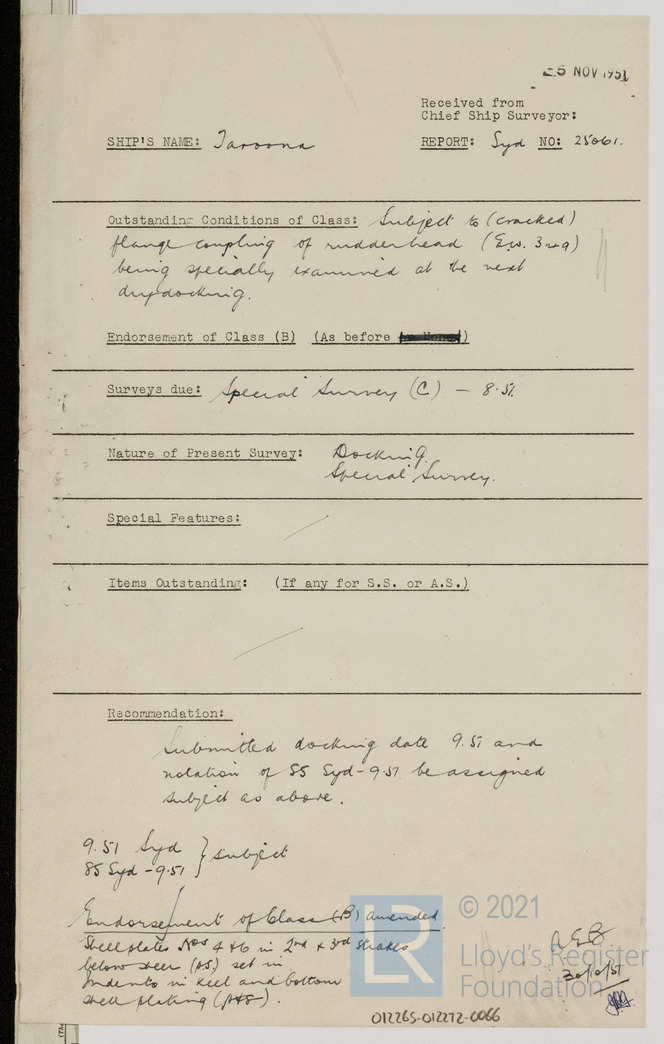 5 NOV 1951
Received from
Chief Ship Surveyor:
SHIP'S NAME: Taroona REPORT: Syd NO: 25061.
Outstanding Conditions of Class: Subject to (cracked)
flange coupling of rudderhead
being specially examined at the next
drydocking.
Endorsement of Class (B) (As before )
Surveys due: Special Survey (C) — 8.51.
Nature of Present Survey: Docking
Special Survey.
Special Features:
Items Outstanding: (If any for S.S. or A.S.)
Recommendation:
Submitted docking date 9.51 and
notation of SS Syd-9.51 be assigned
subject as above.
9.51 Syd } subject
SS Syd - 9.51
Endorsement of Class (B) amended.
Shell plates Nos 4 & 6 in 2nd & 3rd strakes
below sheer (PS) set in
Indents in keel and bottom
shell plating (P&S).
30/10/51
© 2021
Lloyd's Register
Foundation
LR
012265-012272-0066